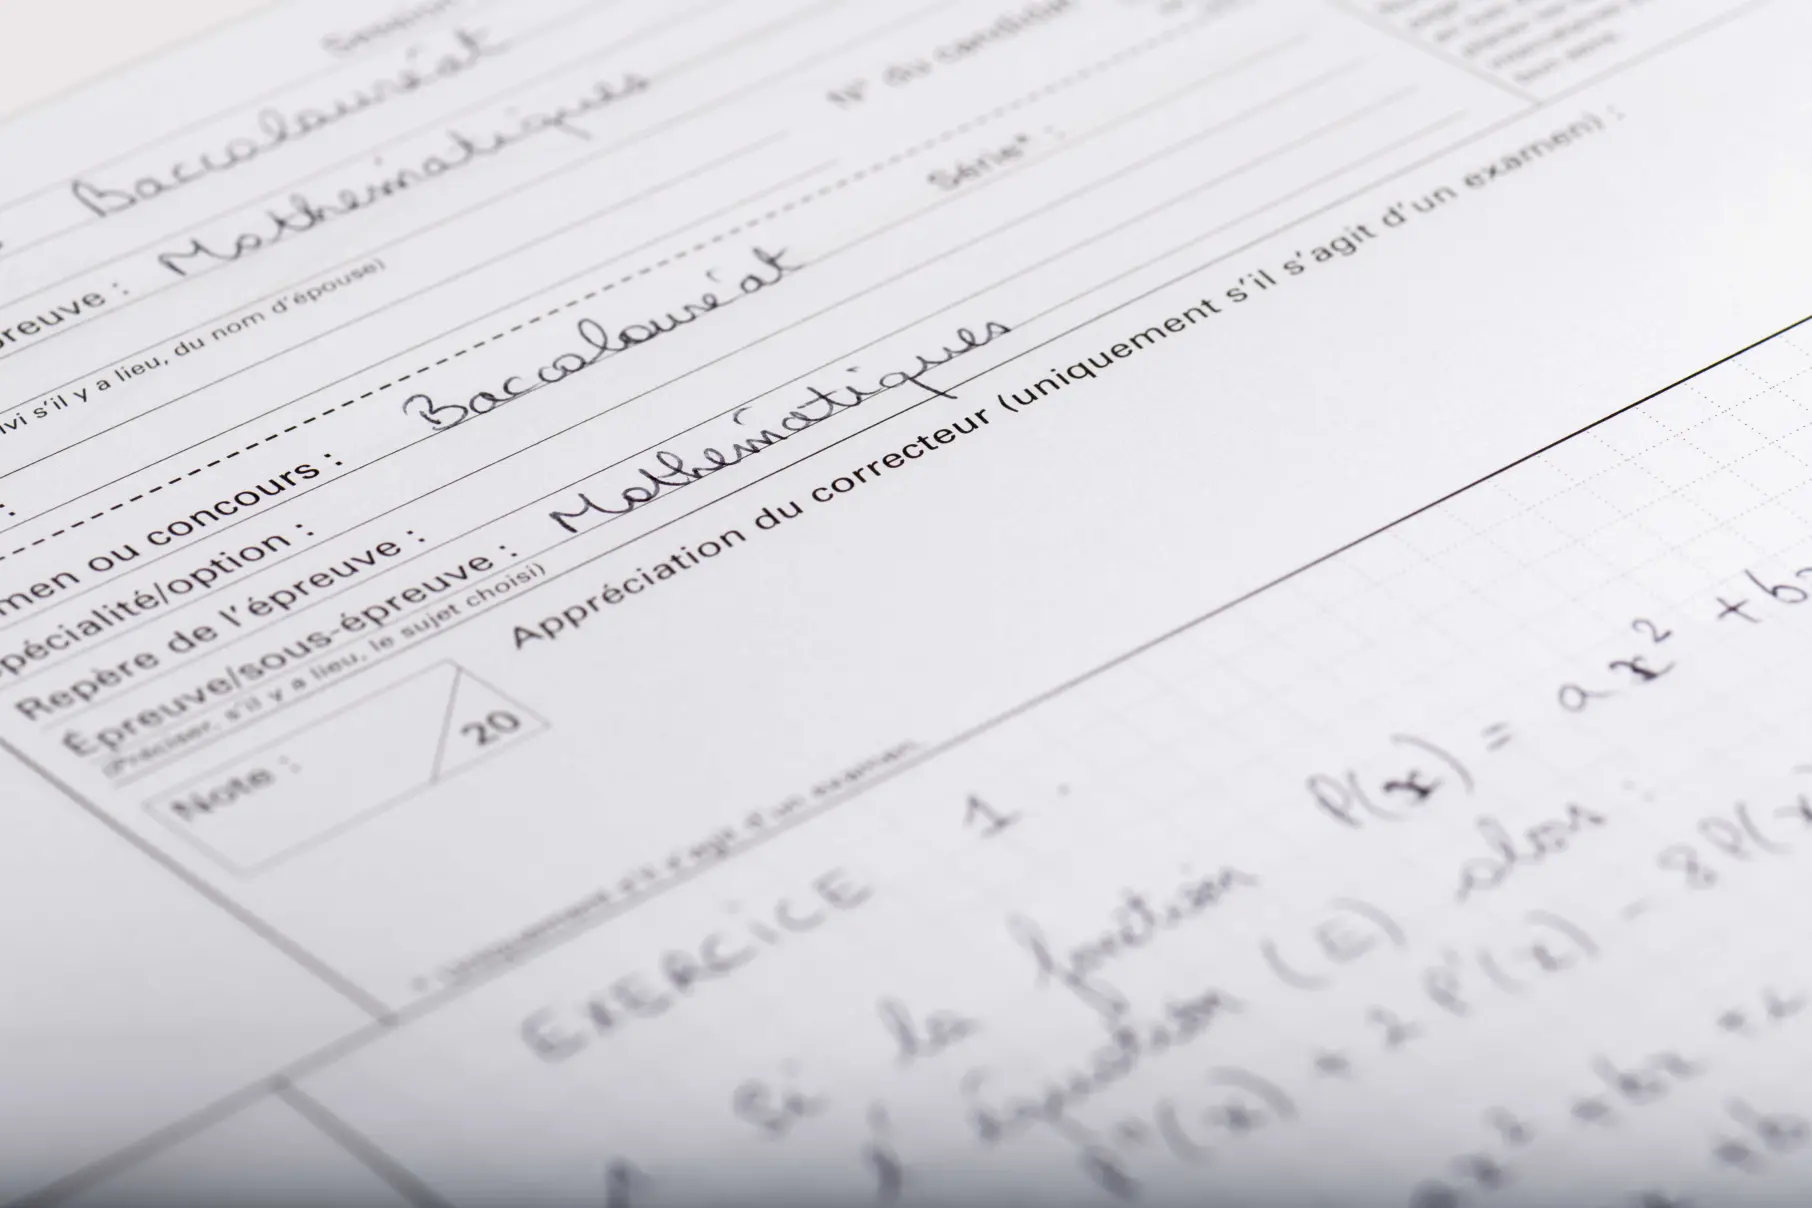 Baccalauréat
N° du candidat
preuve : Mathématiques
vi s'il y a lieu, du nom d'épouse)
Série* :
men ou concours : Baccalauréat
pécialité/option :
Repère de l'épreuve :
Épreuve/sous-épreuve : Mathématiques
(Préciser, s'il y a lieu, le sujet choisi)
Note : 20
Appréciation du correcteur (uniquement s'il s'agit d'un examen) :
* Uniquement s'il s'agit d'un examen.
EXERCICE 1.
Si la fonction P(x) = ax² + bx
l'équation (E) alors :
P''(x) + 2P'(x) - 8P(x